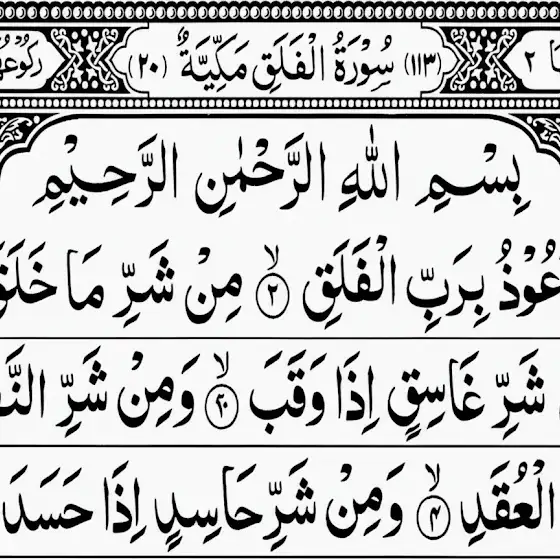 ٢ (١١٣) سُوْرَةُ الْفَلَقِ مَكِّيَّةٌ (٢٠) رکوعہ
بِسْمِ اللهِ الرَّحْمٰنِ الرَّحِيْمِ
عُوْذُ بِرَبِّ الْفَلَقِ ۙ﴿٢﴾ مِنْ شَرِّ مَا خَلَقَ
شَرِّ غَاسِقٍ اِذَا وَقَبَ ۙ﴿٢٠﴾ وَمِنْ شَرِّ النَّفّ
الْعُقَدِ ۙ﴿۴﴾ وَمِنْ شَرِّ حَاسِدٍ اِذَا حَسَدَ